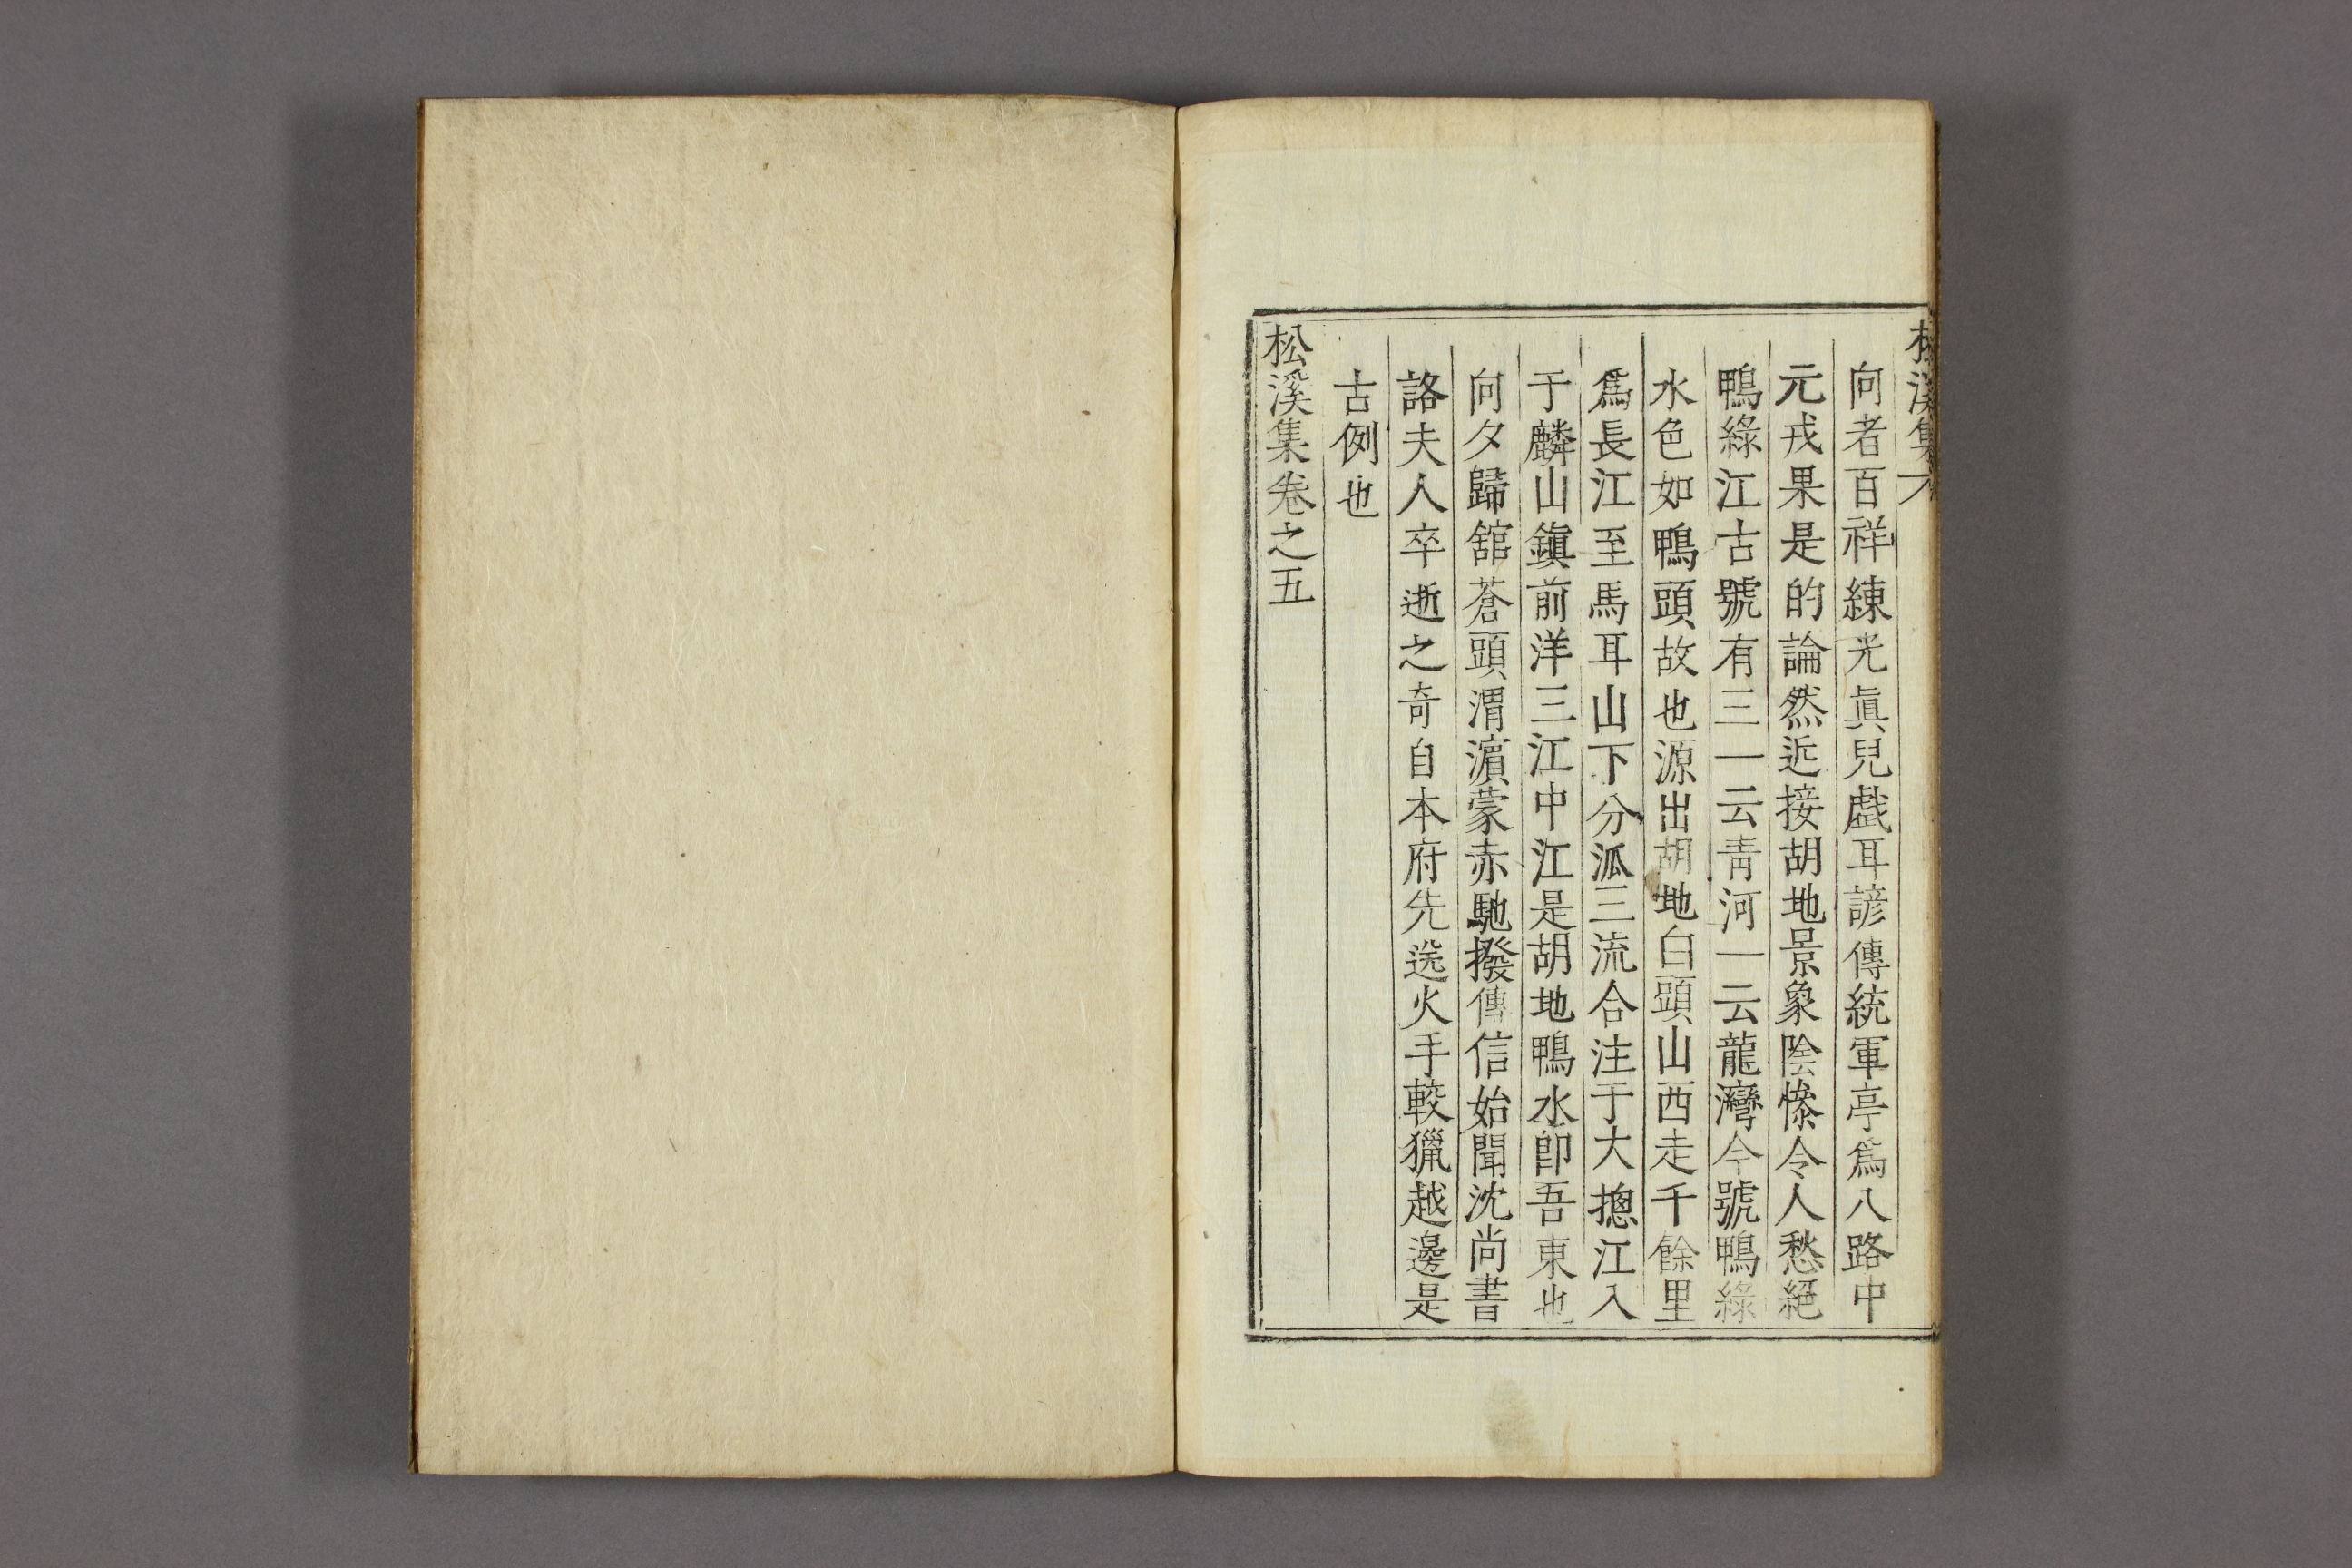 松溪集
向者百祥練光眞兒戯耳諺傳統軍亭爲八路中
元戎果是的論然近接胡地景象陰慘令人愁絕
鴨綠江古號有三一云靑河一云龍灣今號鴨綠
水色如鴨頭故也源出胡地白頭山西走千餘里
爲長江至馬耳山下分派三流合注于大摠江入
于麟山鎭前洋三江中江是胡地鴨水卽吾東也
向夕歸舘蒼頭渭濵蒙赤馳撥傳信始聞沈尚書
詻夫人卒逝之奇自本府先送火手較獵越邊是
古例也
松溪集卷之五